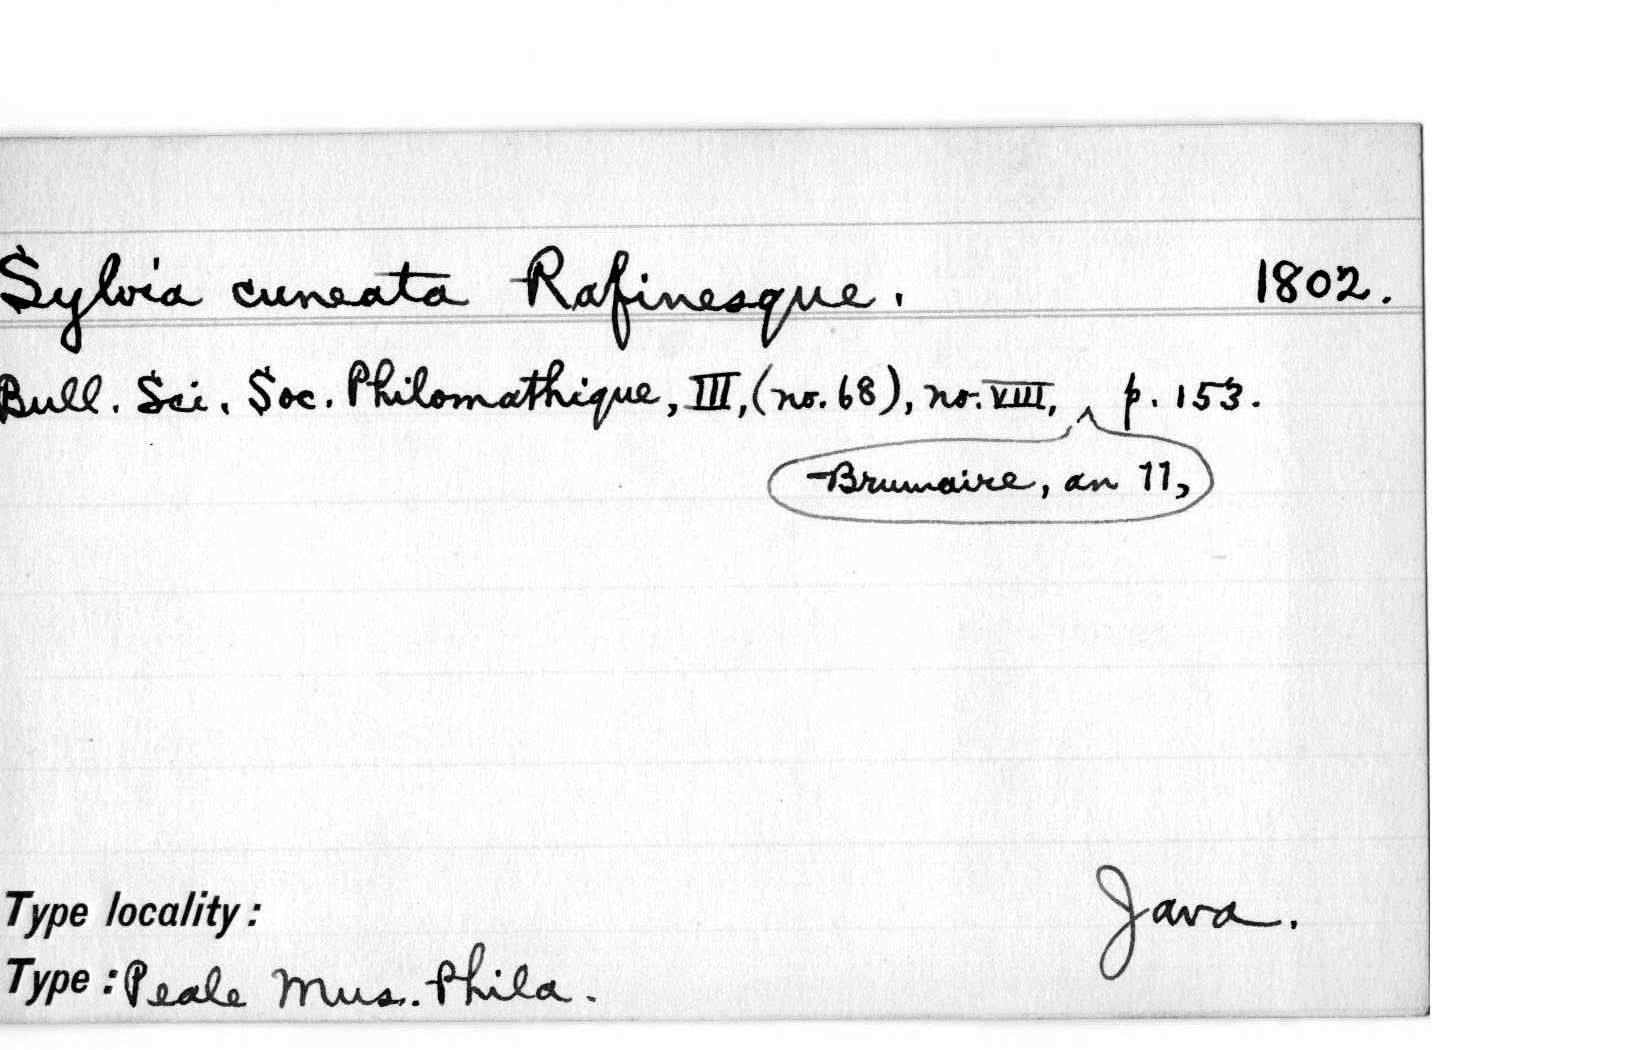 Sylvia cuneata Rafinesque. 1802.
Bull. Sci. Soc. Philomathique, III, (no. 68), no. VIII, ^ p. 153.
Brumaire, an 11,
Type locality: Java.
Type: Peale Mus. Phila.